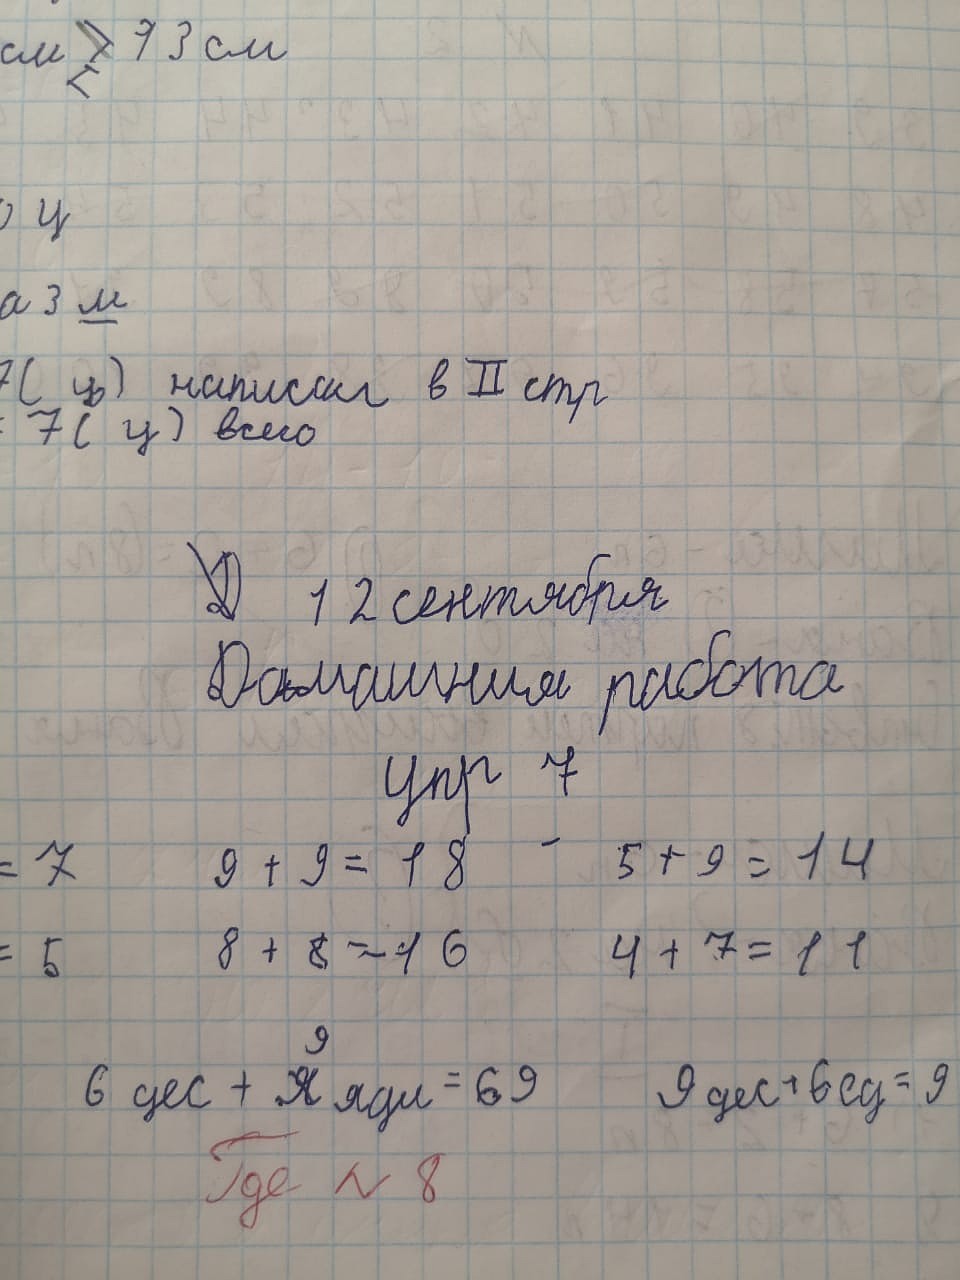 см > 13 см
<
ц
а 3 м
7( ц) написал в II стр
= 7( ц) всего
12 сентября
Домашния работа
упр 7
= 7 9 + 9 = 18 5 + 9 = 14
= 5 8 + 8 = 16 4 + 7 = 11
9
6 дес + яди = 69 9 дес + 6 ед = 9
Где № 8